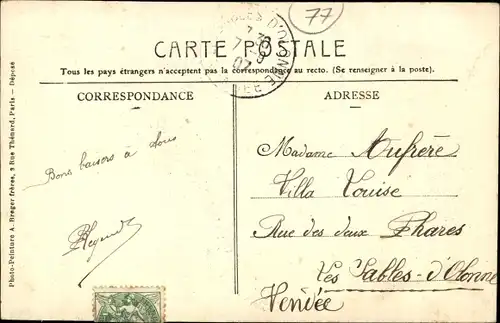 77
CARTE POSTALE
Tous les pays étrangers n'acceptent pas la correspondance au recto. (Se renseigner à la poste.)
CORRESPONDANCE
ADRESSE
Bons baisers à tous
Madame Aufrère
Villa Louise
Rue des deux Phares
Les Sables-d'Olonne
Vendée
Photo-Peinture A. Breger frères, 9 Rue Thénard, Paris - Déposé